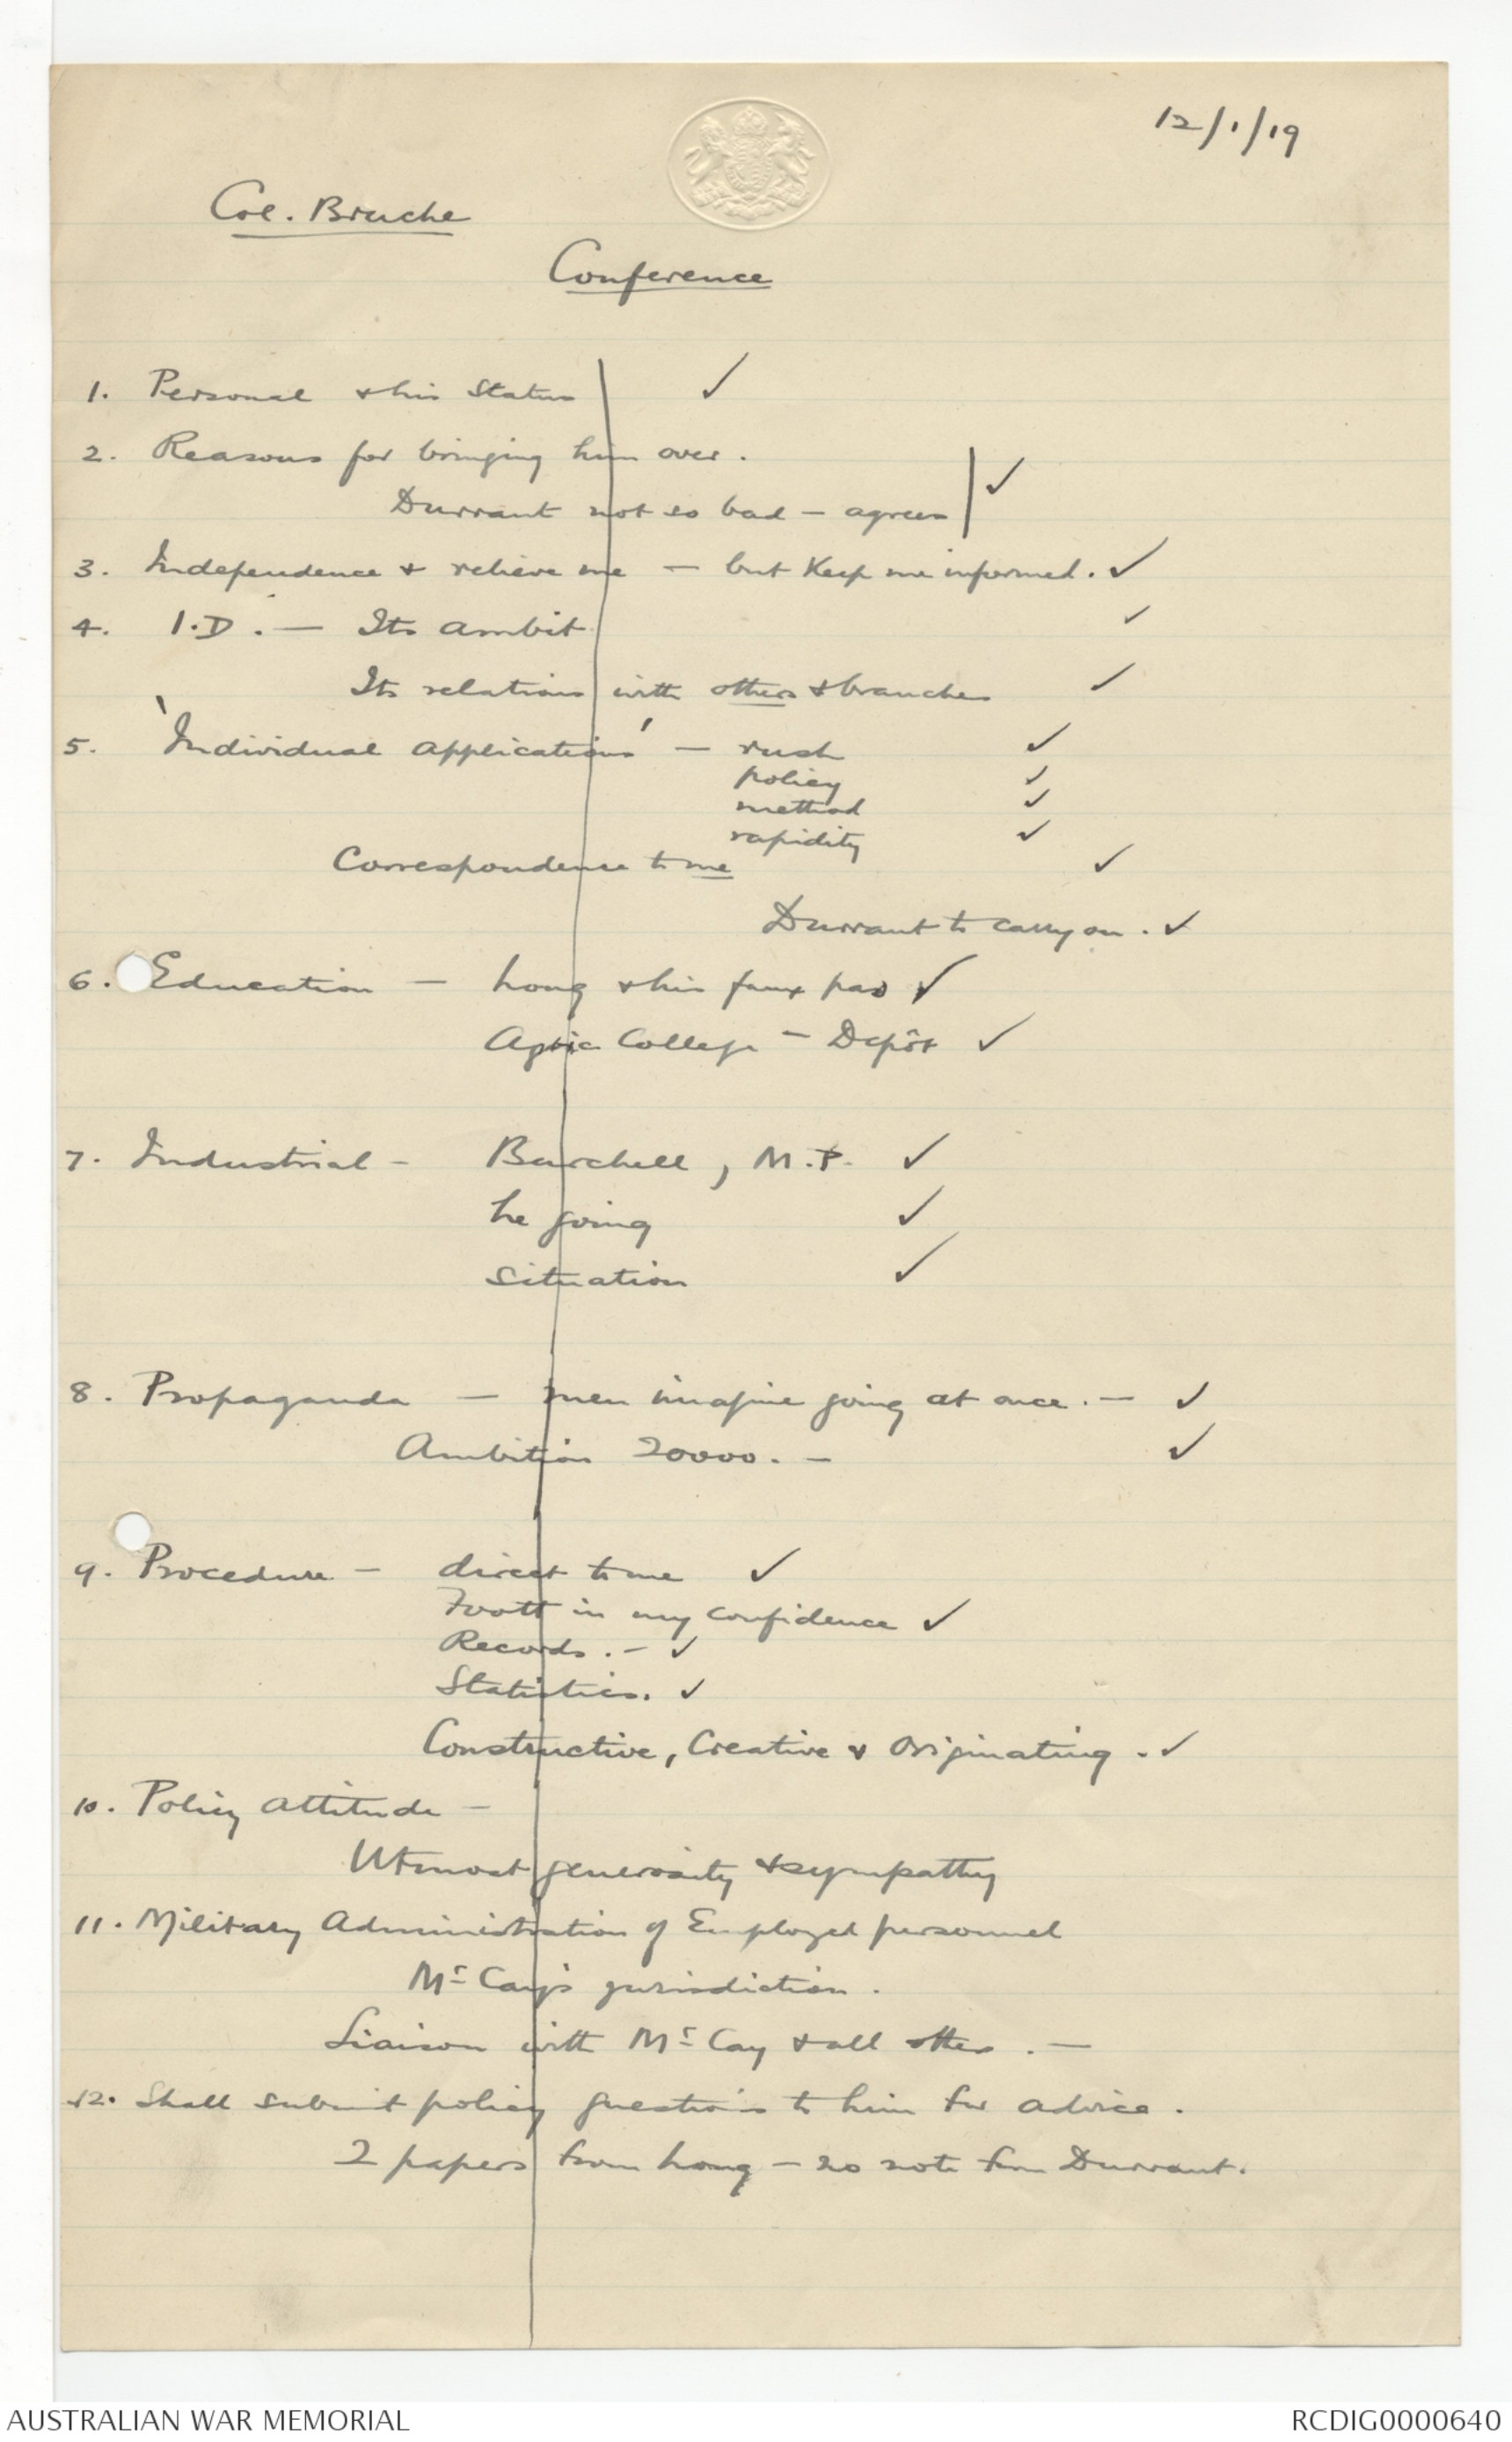 12/1/19
Col. Bruche
Conference
1. Personal & his Status ✓
2. Reasons for bringing him over.
Durrant not so bad – agrees ✓
3. Independence & relieve me – but keep me informed. ✓
4. I.D. – Its ambit ✓
Its relations with others & branches ✓
5. 'Individual applications' – rush ✓
policy ✓
method ✓
rapidity ✓
Correspondence to me ✓
Durrant to carry on. ✓
6. Education – Long & his faux pas ✓
Agric College – Depôt ✓
7. Industrial – Burchell, M.P. ✓
he going ✓
situation ✓
8. Propaganda – men imagine going at once. – ✓
Ambition 20000. – ✓
9. Procedure – direct to me ✓
Foott in my confidence ✓
Records. – ✓
Statistics. ✓
Constructive, Creative & Originating. ✓
10. Policy attitude –
Utmost generosity & sympathy
11. Military Administration of Employed personnel
McCay's jurisdiction.
Liaison with McCay & all others. –
12. Shall submit policy questions to him for advice.
2 papers from Long – no note from Durrant.
AUSTRALIAN WAR MEMORIAL
RCDIG0000640